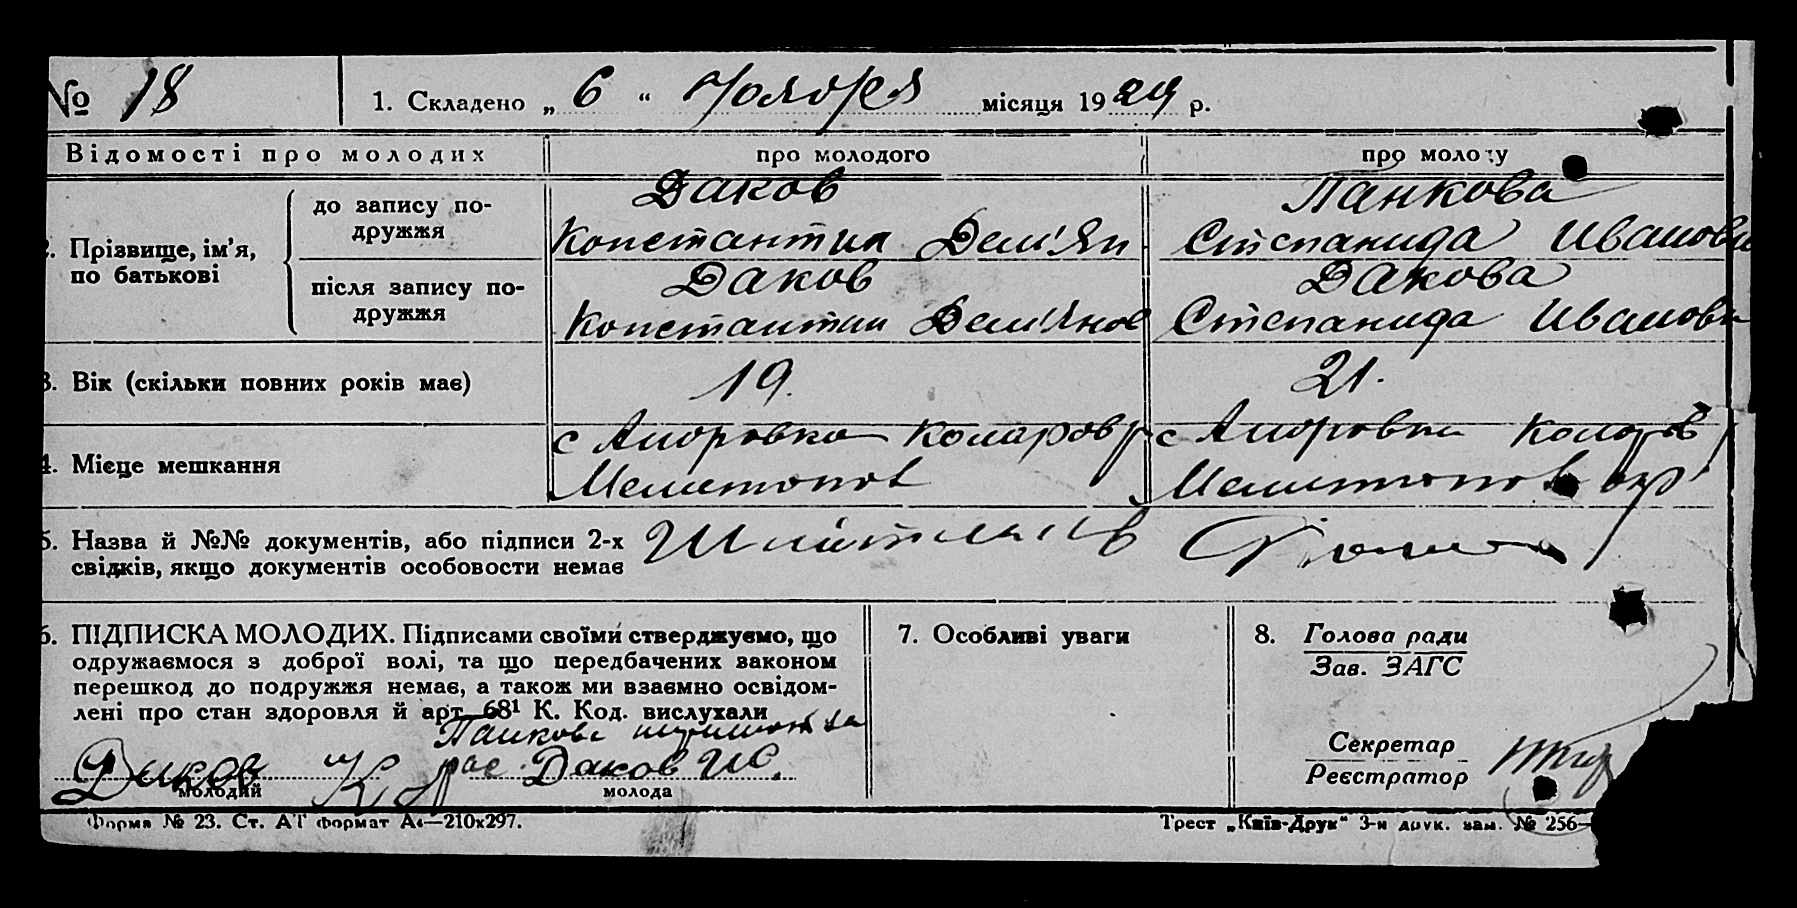 № 18 1. Складено „ 6 “ Ноября місяця 1929 р.
Відомості про молодих про молодого про молоду
Даков Панкова
до запису по-
дружжя
Константин Дем'ян Степанида Иванови
2. Прізвище, ім'я,
по батькові
Даков Дакова
після запису по-
дружжя
Константин Дем'янов Степанида Иванови
3. Вік (скільки повних років має) 19. 21.
с Аноровка с Аноровка
4. Місце мешкання Мелитопол Мелитопол окр
5. Назва й №№ документів, або підписи 2-х
свідків, якщо документів особовости немає
6. ПІДПИСКА МОЛОДИХ. Підписами своїми стверджуємо, що
одружаємося з доброї волі, та що передбачених законом
перешкод до подружжя немає, а також ми взаємно освідом-
лені про стан здоровля й арт. 68¹ К. Код. вислухали
Панкова за
Даков К рас. Даков
молодий молода
7. Особливі уваги
8. Голова ради
Зав. ЗАГС
Секретар
Реєстратор
Форма № 23. Ст. АТ формат А4—210x297. Трест „Київ-Друк“ 3-я друк. зам. № 256—